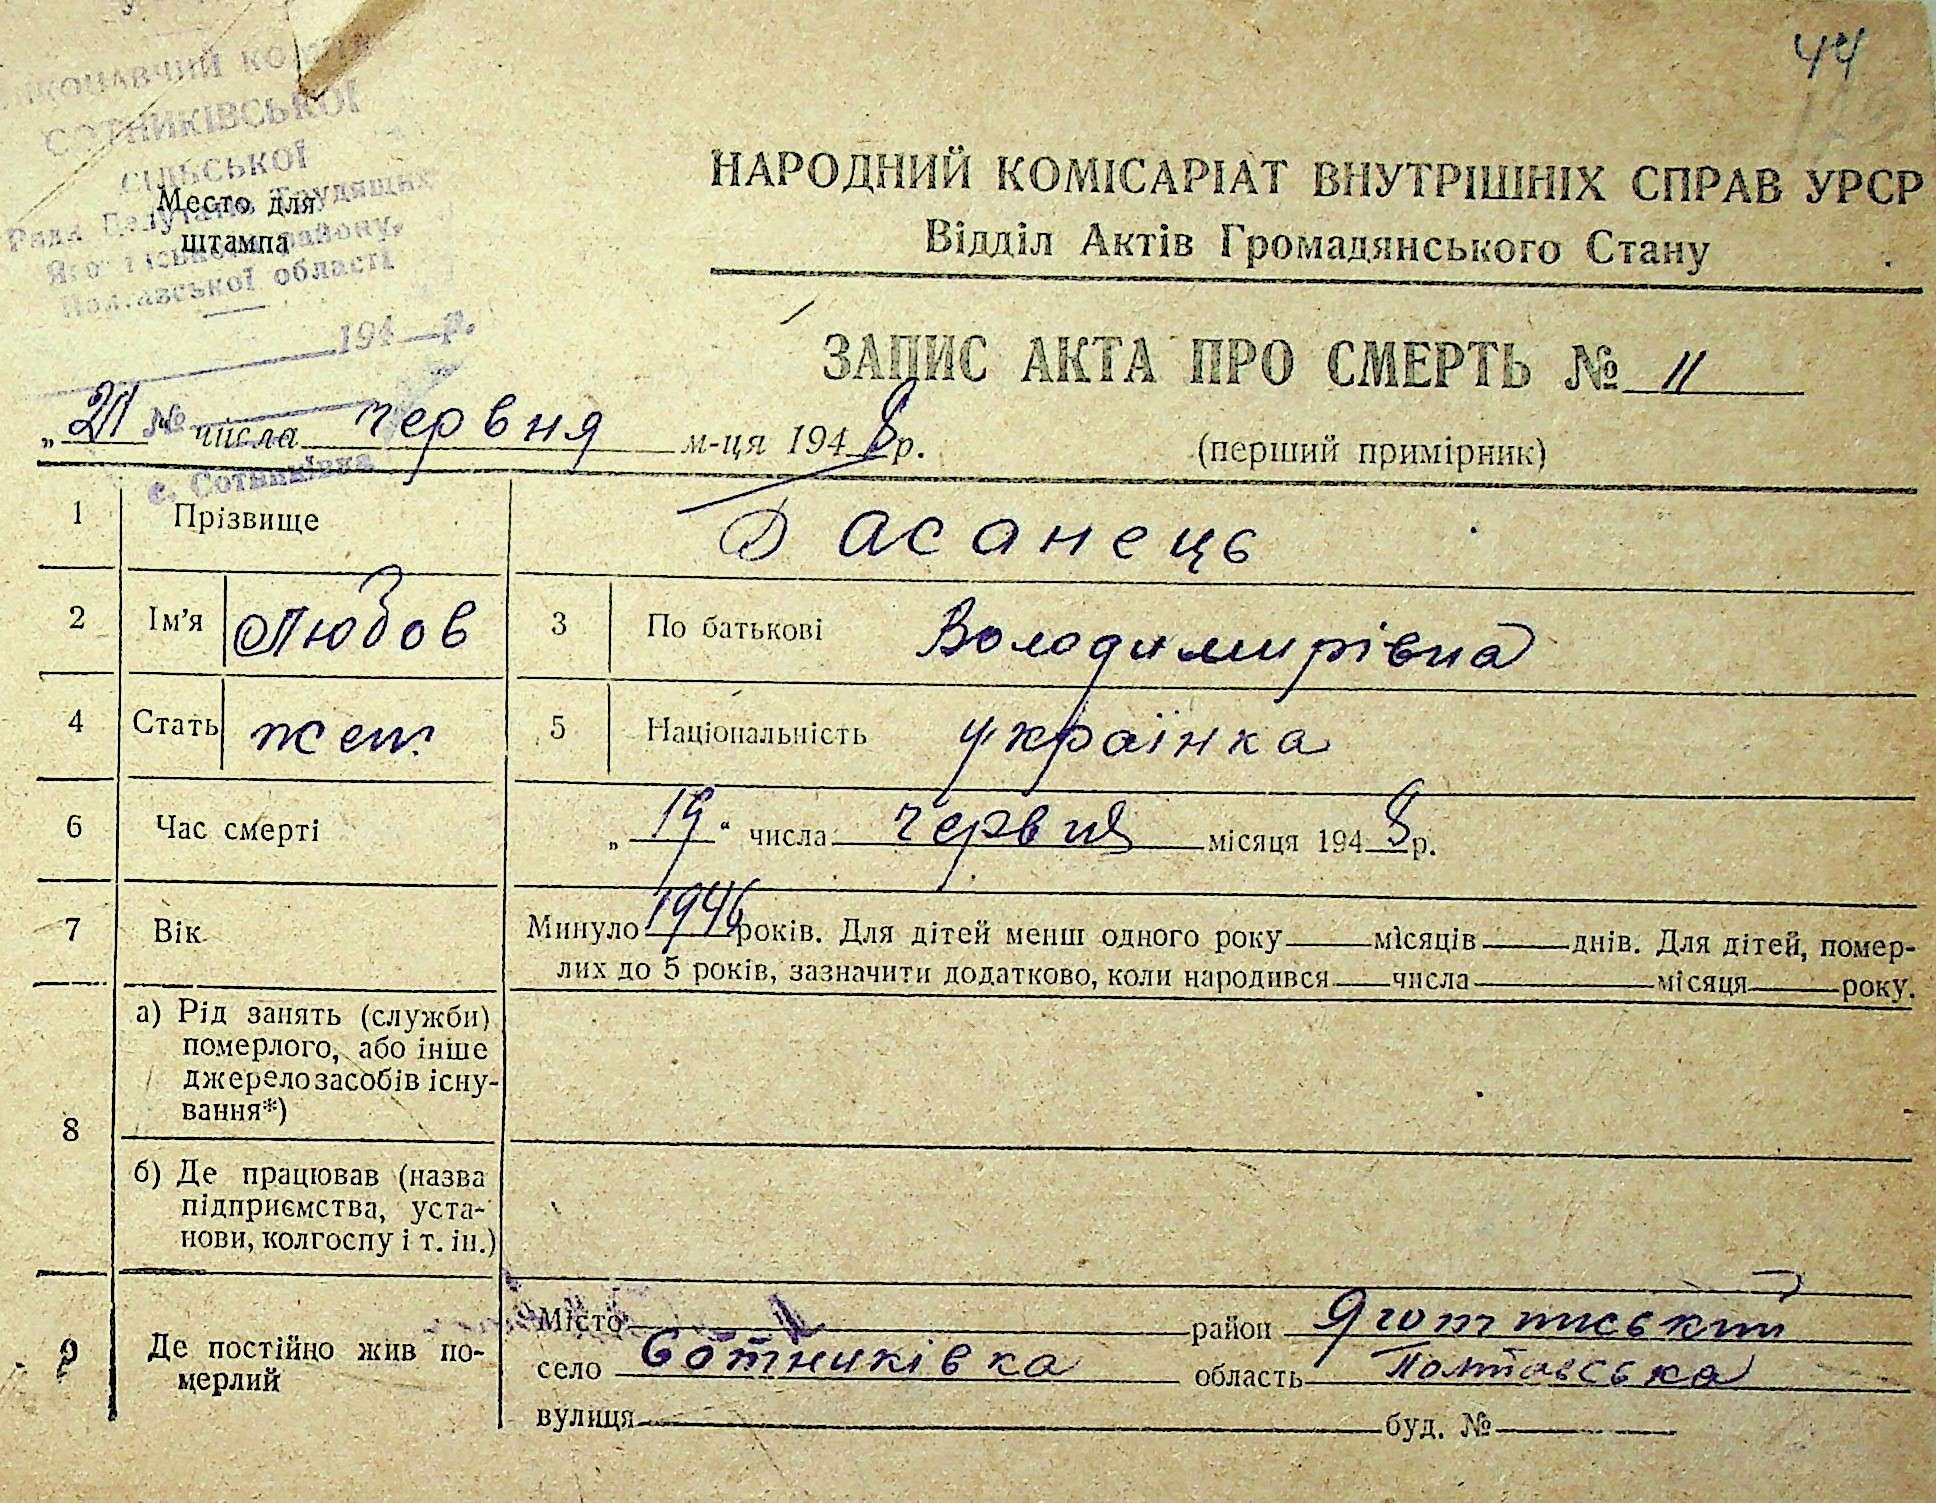 44
ВИКОНАВЧИЙ КОМІТЕТ
СОТНИКІВСЬКОЇ
СІЛЬСЬКОЇ
Ради Депутатів Трудящих
Яготинського району,
Полтавської області
194 р.
№
с. Сотниківка
Место для
штампа
НАРОДНИЙ КОМІСАРІАТ ВНУТРІШНІХ СПРАВ УРСР
Відділ Актів Громадянського Стану
ЗАПИС АКТА ПРО СМЕРТЬ № 11
„21“ числа червня м-ця 1948 р.
(перший примірник)
1 Прізвище Басанець
2 Ім’я Любов 3 По батькові Володимирівна
4 Стать жен. 5 Національність українка
6 Час смерті „19“ числа червня місяця 1948 р.
7 Вік Минуло 1946 років. Для дітей менш одного року місяців днів. Для дітей, помер-
лих до 5 років, зазначити додатково, коли народився числа місяця року.
8 а) Рід занять (служби)
померлого, або інше
джерело засобів існу-
вання*)
б) Де працював (назва
підприємства, уста-
нови, колгоспу і т. ін.)
9 Де постійно жив по-
мерлий
Місто район Яготинський
село Сотниківка область Полтавська
вулиця буд. №